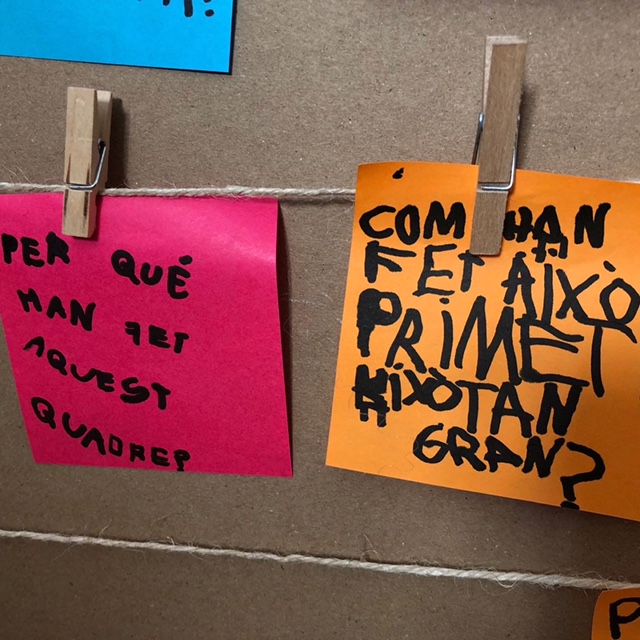 PER QUÉ
HAN FET
AQUEST
QUADRE?
COM HAN
FET AIXÒ
PRIMET
AIXÒ TAN
GRAN?
P